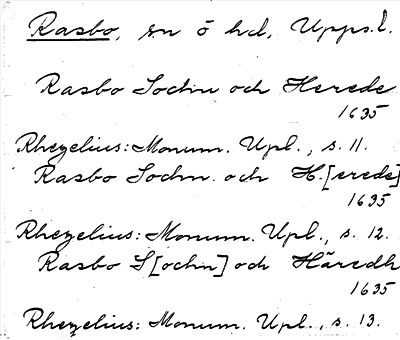 Rasbo, sn ö hd, Upps.l.
Rasbo Sochn och Herede
1635
Rhezelius: Monum. Upl., s. 11.
Rasbo Sochn och H.[erede]
1635
Rhezelius: Monum. Upl., s. 12.
Rasbo S[ochn] och Häredh
1635
Rhezelius: Monum. Upl., s. 13.